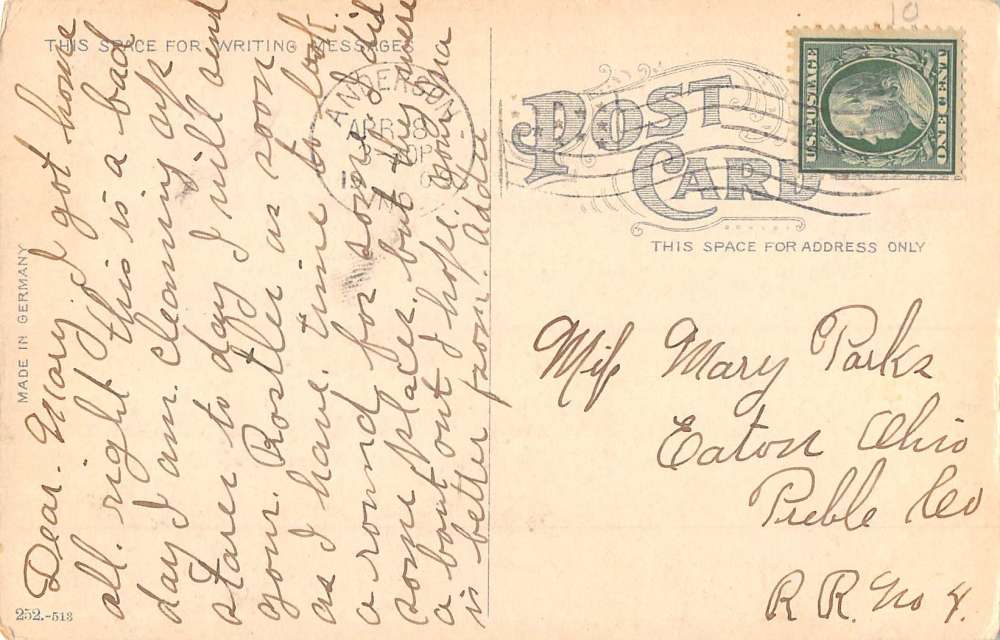 THIS SPACE FOR WRITING MESSAGES
Dear. Mary I got home
all. right This is a bad
day I am. cleaning up
stares to day I will send
your. as soon
as I have. time to look
a round for some I did
some places. but they were
a bout out I hope
is better soon. Addia
MADE IN GERMANY
252.-513
ANDERSON
APR 8
POST
CARD
U.S. POSTAGE
ONE CENT
10
THIS SPACE FOR ADDRESS ONLY
Miss Mary Parks
Eaton Ohio
Preble Co
R R. No 4.